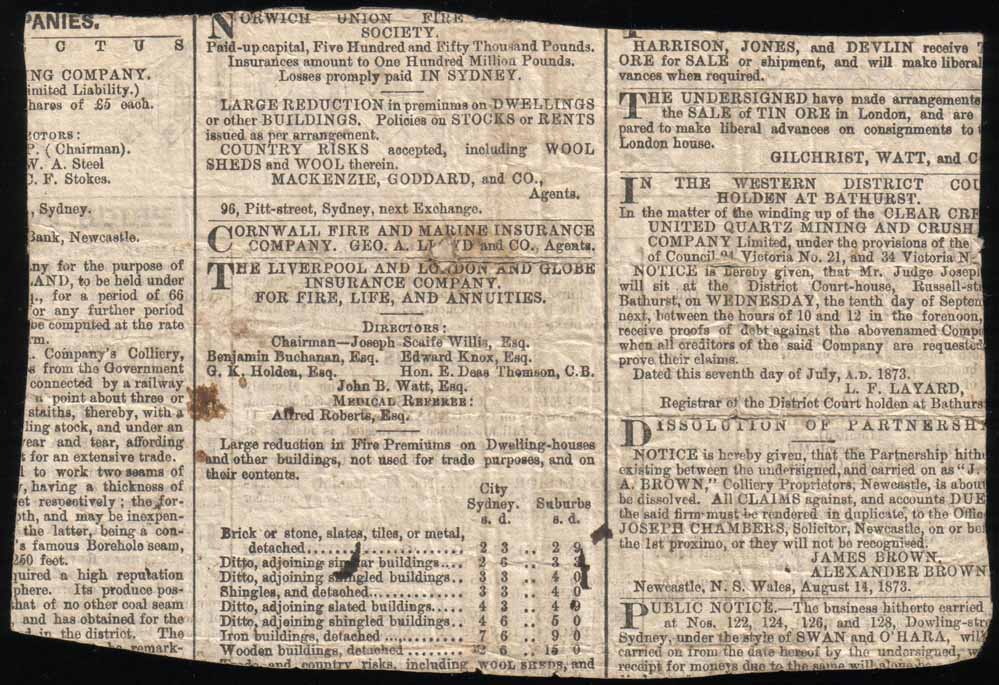 PANIES.
C T U S
NG COMPANY.
imited Liability.)
hares of £5 each.
ECTORS:
P. (Chairman).
W. A. Steel
C. F. Stokes.
, Sydney.
Bank, Newcastle.
ny for the purpose of
LAND, to be held under
, for a period of 66
or any further period
be computed at the rate
rm.
. Company's Colliery,
s from the Government
connected by a railway
a point about three or
staiths, thereby, with a
ling stock, and under an
ear and tear, affording
t for an extensive trade.
l to work two seams of
y, having a thickness of
et respectively; the for-
oth, and may be inexpen-
the latter, being a con-
's famous Borehole seam,
250 feet.
quired a high reputation
phere. Its produce pos-
that of no other coal seam
and has obtained for the
d in the district. The
remark-
NORWICH UNION FIRE
SOCIETY.
Paid-up capital, Five Hundred and Fifty Thousand Pounds.
Insurances amount to One Hundred Million Pounds.
Losses promply paid IN SYDNEY.
LARGE REDUCTION in premiums on DWELLINGS
or other BUILDINGS. Policies on STOCKS or RENTS
issued as per arrangement.
COUNTRY RISKS accepted, including WOOL
SHEDS and WOOL therein.
MACKENZIE, GODDARD, and CO.,
Agents.
96, Pitt-street, Sydney, next Exchange.
CORNWALL FIRE AND MARINE INSURANCE
COMPANY. GEO. A. LLOYD and CO., Agents.
THE LIVERPOOL AND LONDON AND GLOBE
INSURANCE COMPANY.
FOR FIRE, LIFE, AND ANNUITIES.
DIRECTORS:
Chairman—Joseph Scaife Willis, Esq.
Benjamin Buchanan, Esq. Edward Knox, Esq.
G. K. Holden, Esq. Hon. E. Deas Thomson, C.B.
John B. Watt, Esq.
MEDICAL REFEREE:
Alfred Roberts, Esq.
Large reduction in Fire Premiums on Dwelling-houses
and other buildings, not used for trade purposes, and on
their contents.
City
Sydney. Suburbs
s. d. s. d.
Brick or stone, slates, tiles, or metal,
detached............ 2 3 .. 2 9
Ditto, adjoining similar buildings.... 2 6 .. 3 3
Ditto, adjoining shingled buildings.. 3 3 .. 4 0
Shingles, and detached.............. 3 3 .. 4 0
Ditto, adjoining slated buildings..... 4 3 .. 4 9
Ditto, adjoining shingled buildings.. 4 6 .. 5 0
Iron buildings, detached ............ 7 6 .. 9 0
Wooden buildings, detached ........ 12 6 .. 15 0
Trade and country risks, including WOOL SHEDS, and
HARRISON, JONES, and DEVLIN receive
ORE for SALE or shipment, and will make liberal
vances when required.
THE UNDERSIGNED have made arrangements
the SALE of TIN ORE in London, and are
pared to make liberal advances on consignments to
London house.
GILCHRIST, WATT, and C
IN THE WESTERN DISTRICT COU
HOLDEN AT BATHURST.
In the matter of the winding up of the CLEAR CRE
UNITED QUARTZ MINING AND CRUSH
COMPANY Limited, under the provisions of the
of Council Victoria No. 21, and 34 Victoria N
NOTICE is hereby given, that Mr. Judge Josep
will sit at the District Court-house, Russell-str
Bathurst, on WEDNESDAY, the tenth day of Septem
next, between the hours of 10 and 12 in the forenoon,
receive proofs of debt against the abovenamed Comp
when all creditors of the said Company are requested
prove their claims.
Dated this seventh day of July, A.D. 1873.
L. F. LAYARD,
Registrar of the District Court holden at Bathurs
DISSOLUTION OF PARTNERSHI
NOTICE is hereby given, that the Partnership hith
existing between the undersigned, and carried on as "J.
A. BROWN," Colliery Proprietors, Newcastle, is about
be dissolved. All CLAIMS against, and accounts DUE
the said firm must be rendered in duplicate, to the Offic
JOSEPH CHAMBERS, Solicitor, Newcastle, on or bef
the 1st proximo, or they will not be recognised.
JAMES BROWN.
ALEXANDER BROWN
Newcastle, N. S. Wales, August 14, 1873.
PUBLIC NOTICE.—The business hitherto carried
at Nos. 122, 124, 126, and 128, Dowling-stre
Sydney, under the style of SWAN and O'HARA, will
carried on from the date hereof by the undersigned, w
receipt for moneys due to the same will alone be